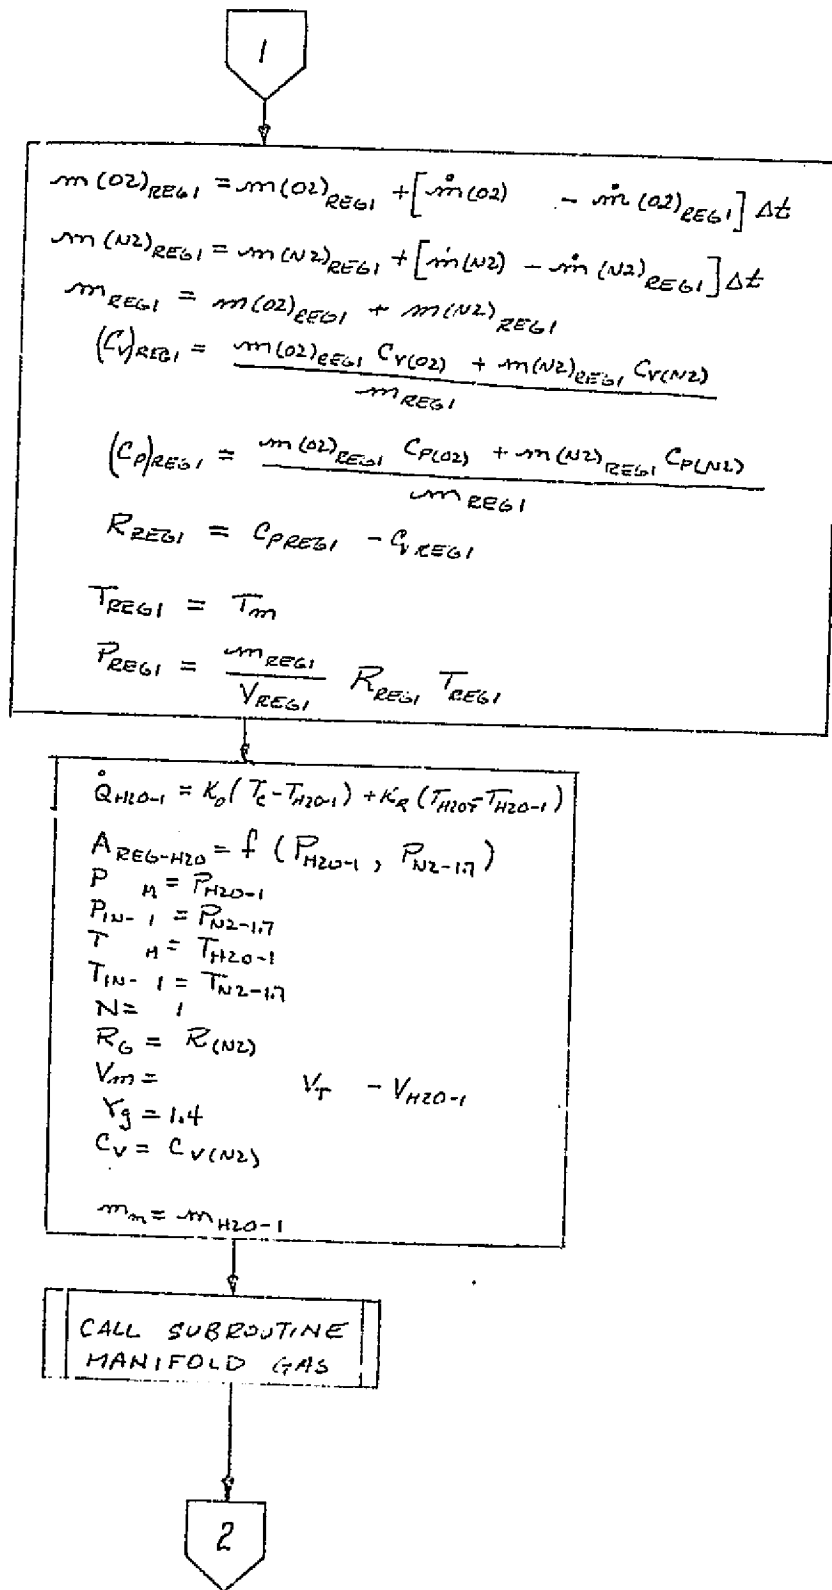 1
m(O2)REG1 = m(O2)REG1 + [ṁ(O2) - ṁ(O2)REG1] Δt
m(N2)REG1 = m(N2)REG1 + [ṁ(N2) - ṁ(N2)REG1] Δt
mREG1 = m(O2)REG1 + m(N2)REG1
(Cv)REG1 = m(O2)REG1 Cv(O2) + m(N2)REG1 Cv(N2)
mREG1
(Cp)REG1 = m(O2)REG1 Cp(O2) + m(N2)REG1 Cp(N2)
mREG1
RREG1 = CPREG1 - CVREG1
TREG1 = Tm
PREG1 = mREG1 RREG1 TREG1
VREG1
Q̇H2O-1 = Ko(Tc - TH2O-1) + KR(TH2OT - TH2O-1)
AREG-H2O = f (PH2O-1, PN2-1.7)
P M = PH2O-1
PIN-1 = PN2-1.7
T M = TH2O-1
TIN-1 = TN2-1.7
N = 1
RG = R(N2)
Vm = VT - VH2O-1
γg = 1.4
CV = CV(N2)
mm = mH2O-1
CALL SUBROUTINE
MANIFOLD GAS
2